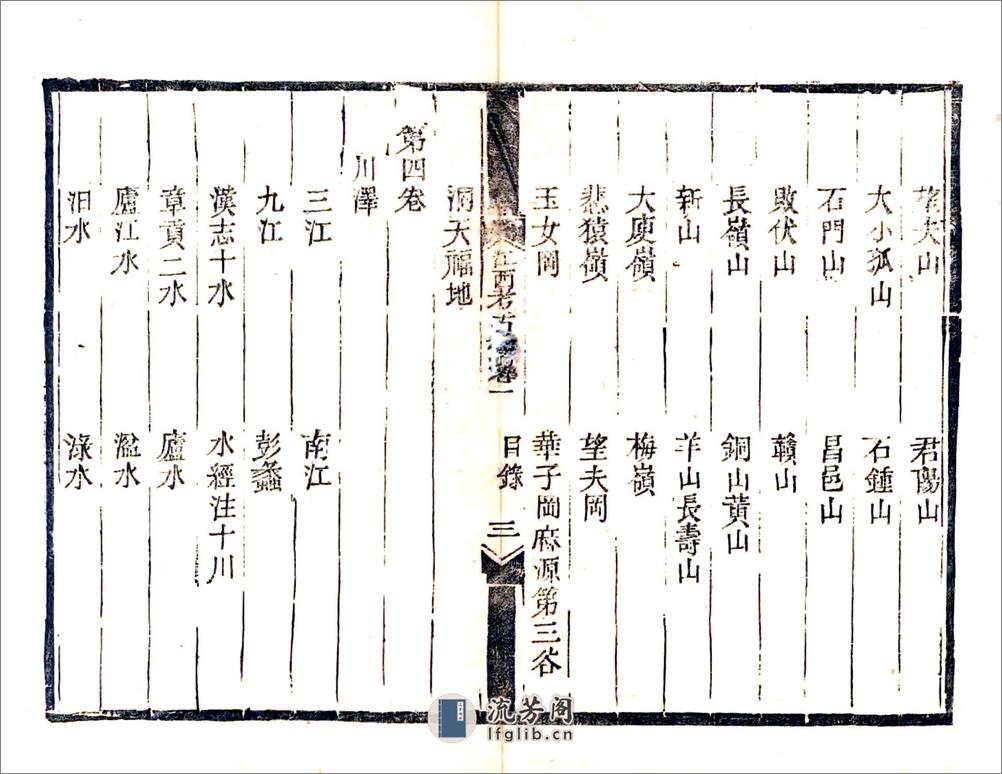 望夫山　君陽山
大小孤山　石鍾山
石門山　昌邑山
敗伏山　贛山
長嶺山　銅山黃山
斩山　羊山長壽山
大庾嶺　梅嶺
悲猿嶺　望夫岡
玉女岡　華子岡麻源第三谷
江西考古錄卷一　目錄　三
洞天福地
第四卷
川澤
三江　南江
九江　彭蠡
漢志十水　水經注十川
章貢二水　廬水
廬江水　湓水
汨水　淥水
流芳阁
lfglib.cn